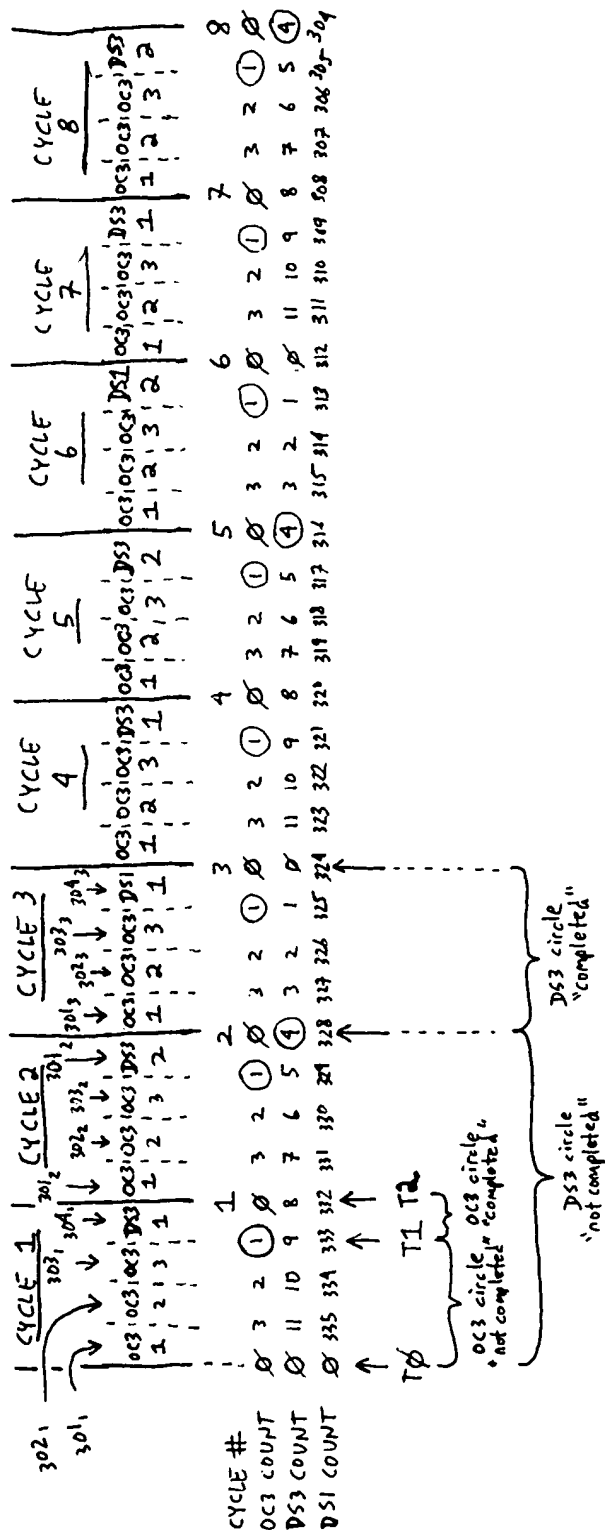 CYCLE 1 CYCLE 2 CYCLE 3 CYCLE 4 CYCLE 5 CYCLE 6 CYCLE 7 CYCLE 8
302₁ 301₁ 303₁ 304₁ 301₂ 302₂ 303₂ 301₂ 301₃ 302₃ 303₃ 304₃
OC3 OC3 OC3 DS3 OC3 OC3 OC3 DS3 OC3 OC3 OC3 DS1 OC3 OC3 OC3 DS3 OC3 OC3 OC3 DS3 OC3 OC3 OC3 DS1 OC3 OC3 OC3 DS3 OC3 OC3 OC3 DS3
1 2 3 1 1 2 3 2 1 2 3 1 1 2 3 1 1 2 3 2 1 2 3 2 1 2 3 1 1 2 3 2
CYCLE # 1 2 3 4 5 6 7 8
OC3 COUNT Ø 3 2 1 Ø 3 2 1 Ø 3 2 1 Ø 3 2 1 Ø 3 2 1 Ø 3 2 1 Ø 3 2 1 Ø 3 2 1 Ø
DS3 COUNT Ø 11 10 9 8 7 6 5 4 3 2 1 Ø 11 10 9 8 7 6 5 4 3 2 1 Ø 11 10 9 8 7 6 5 4
DS1 COUNT Ø 335 334 333 332 331 330 329 328 327 326 325 324 323 322 321 320 319 318 317 316 315 314 313 312 311 310 319 308 307 306 305 304
TØ T1 T2
OC3 circle "not completed"
OC3 circle "completed"
DS3 circle
"not completed"
DS3 circle
"completed"